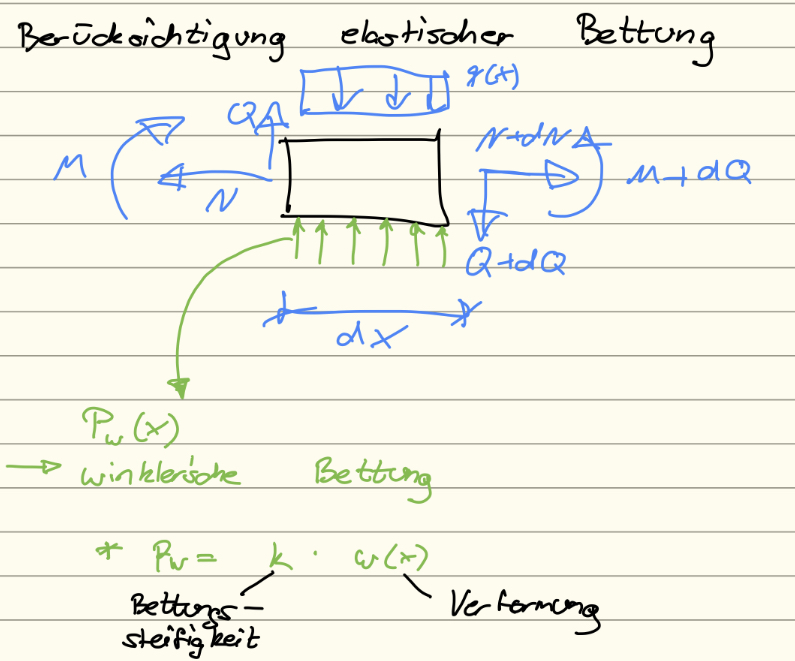 Berücksichtigung elastischer Bettung
q(x)
Q
N+dN
M
N
M+dQ
Q+dQ
dx
Pw(x)
→ winklersche Bettung
* Pw = k · w(x)
Bettungs-
steifigkeit
Verformung